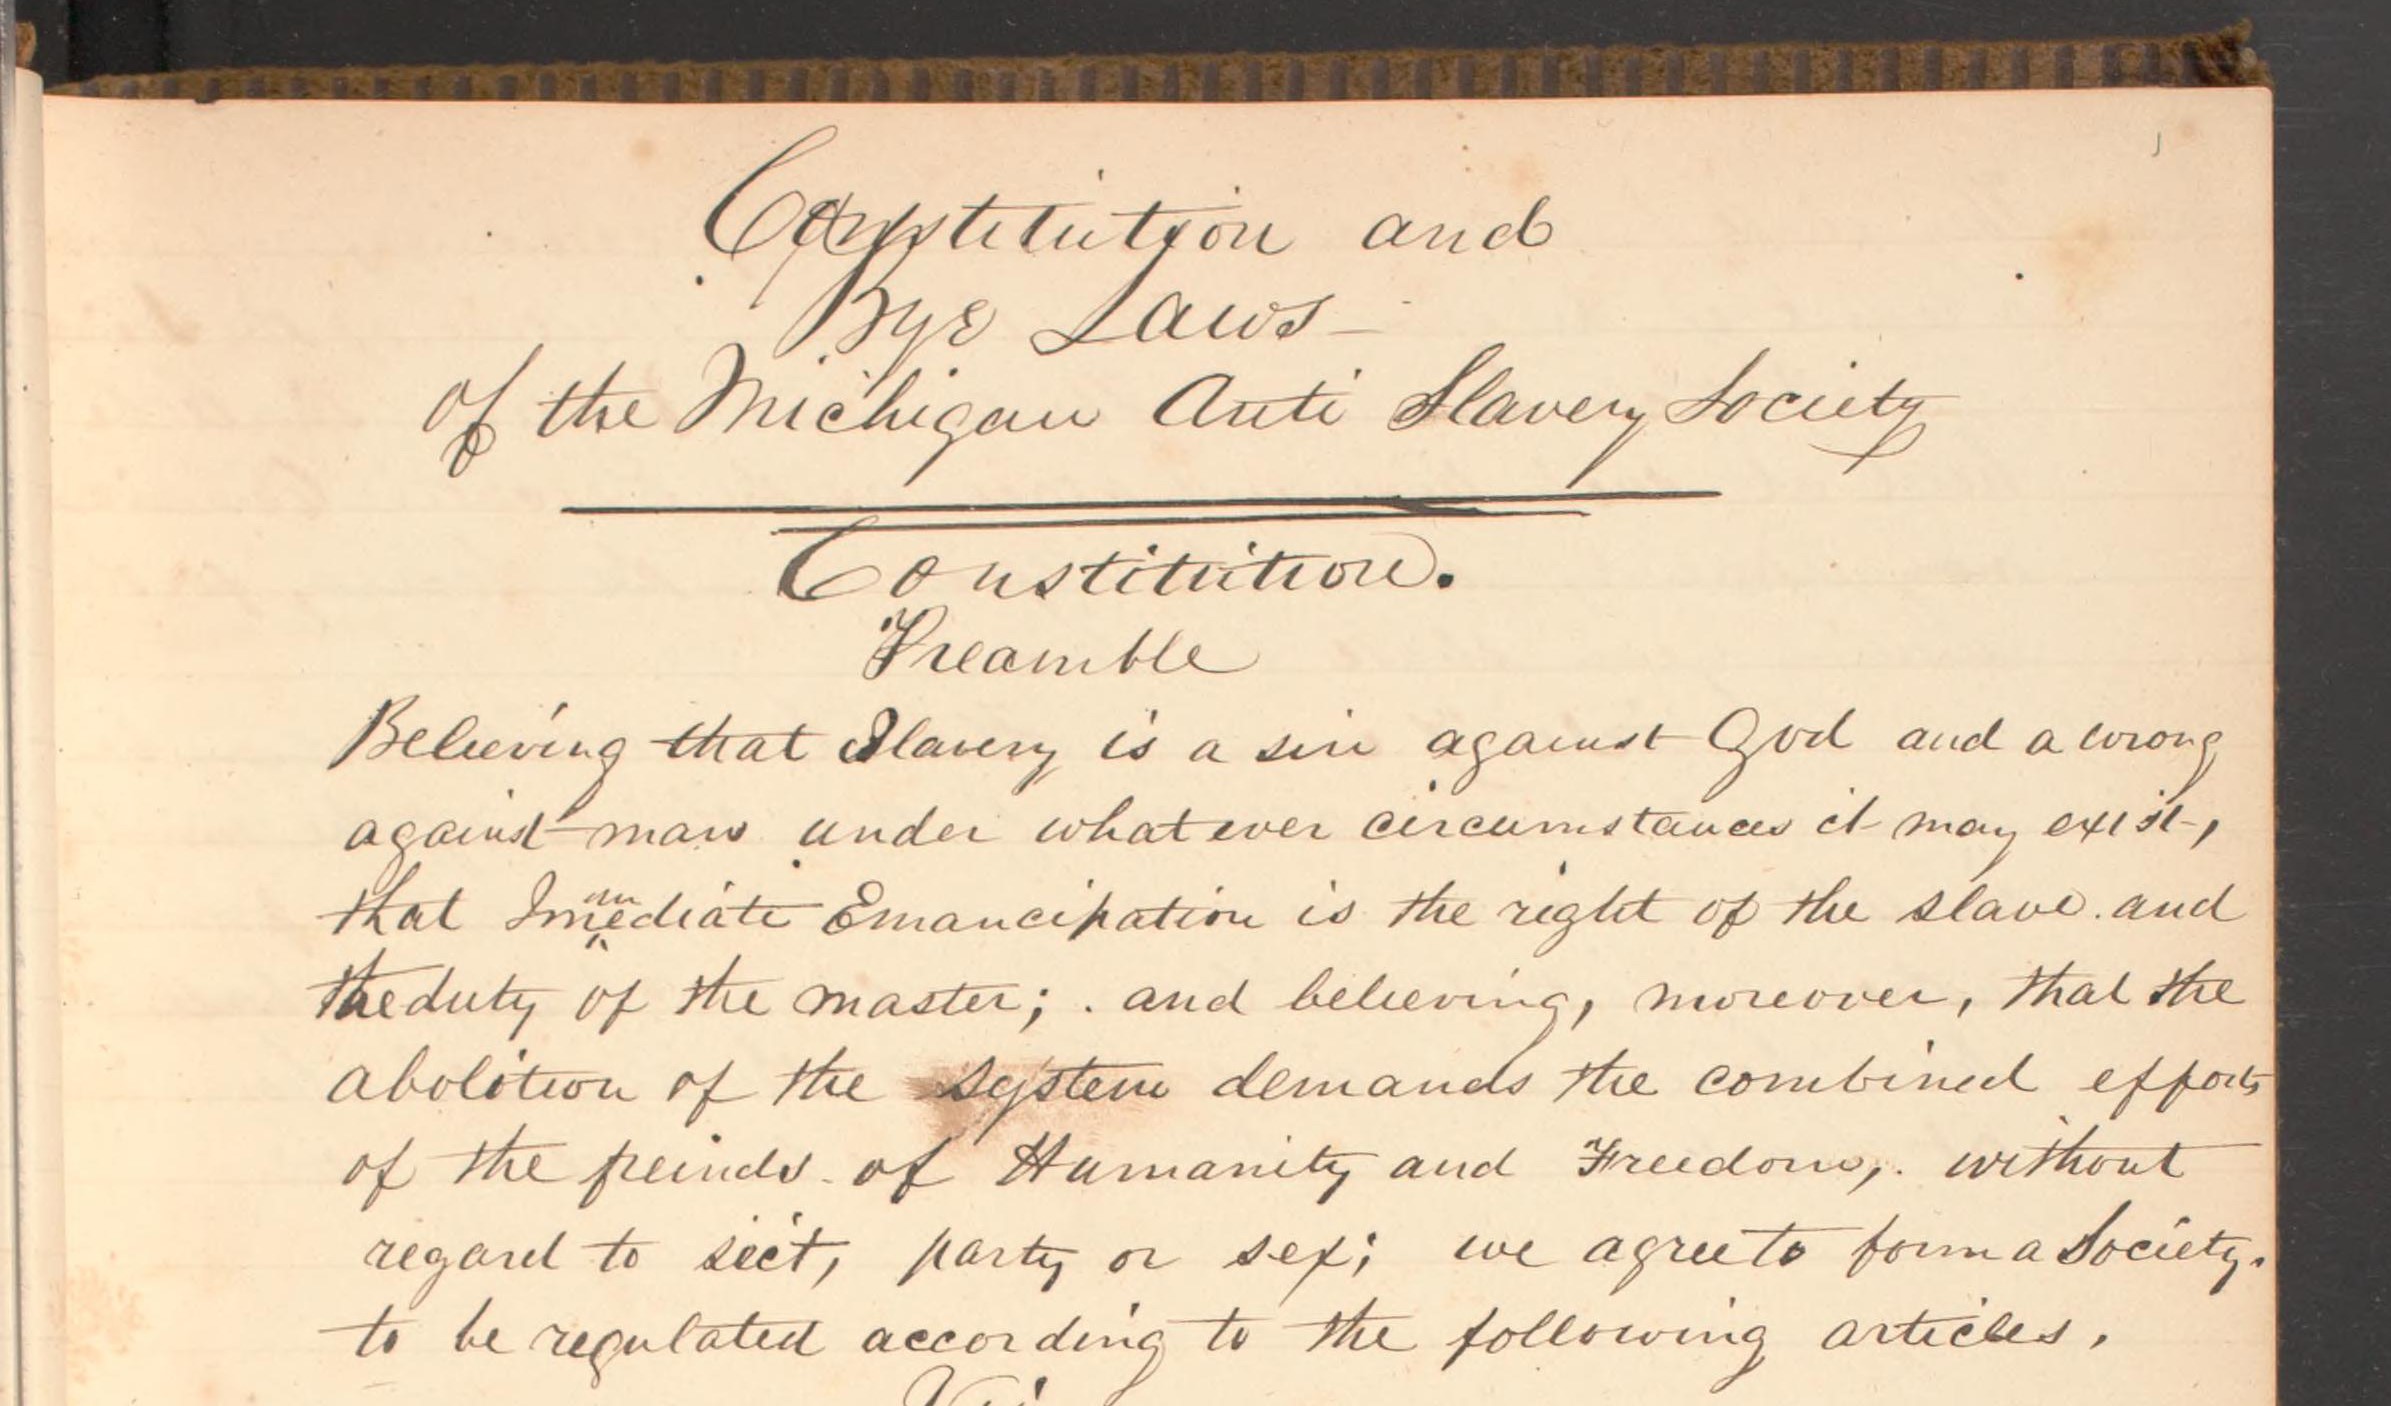 Constitution and
Bye Laws-
of the Michigan Anti Slavery Society
Constitution.
Preamble
Believing that Slavery is a sin against God and a wrong
against man under whatever circumstances it may exist,
that Immediate Emancipation is the right of the slave. and
the duty of the master; . and believing, moreover, that the
abolition of the system demands the combined efforts
of the freinds. of Humanity and Freedom,. without
regard to sect, party or sex; we agree to form a Society.
to be regulated according to the following articles.